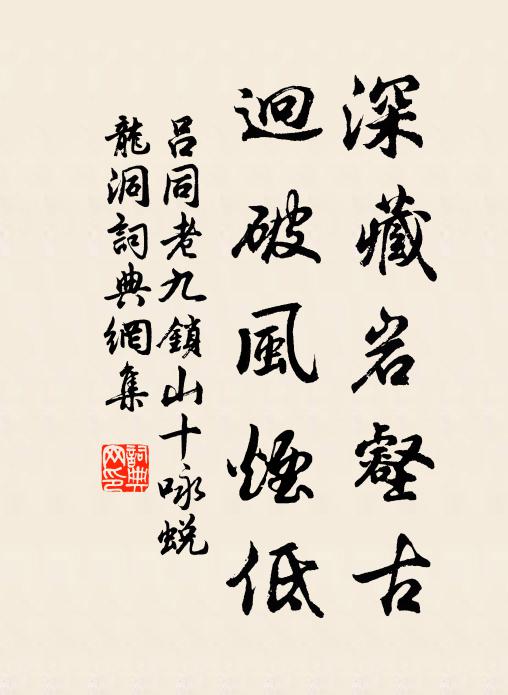 深藏岩壑古
迥破風煙低
呂同老九鎖山十咏蛻
龍洞詞典網集
詞典
网印